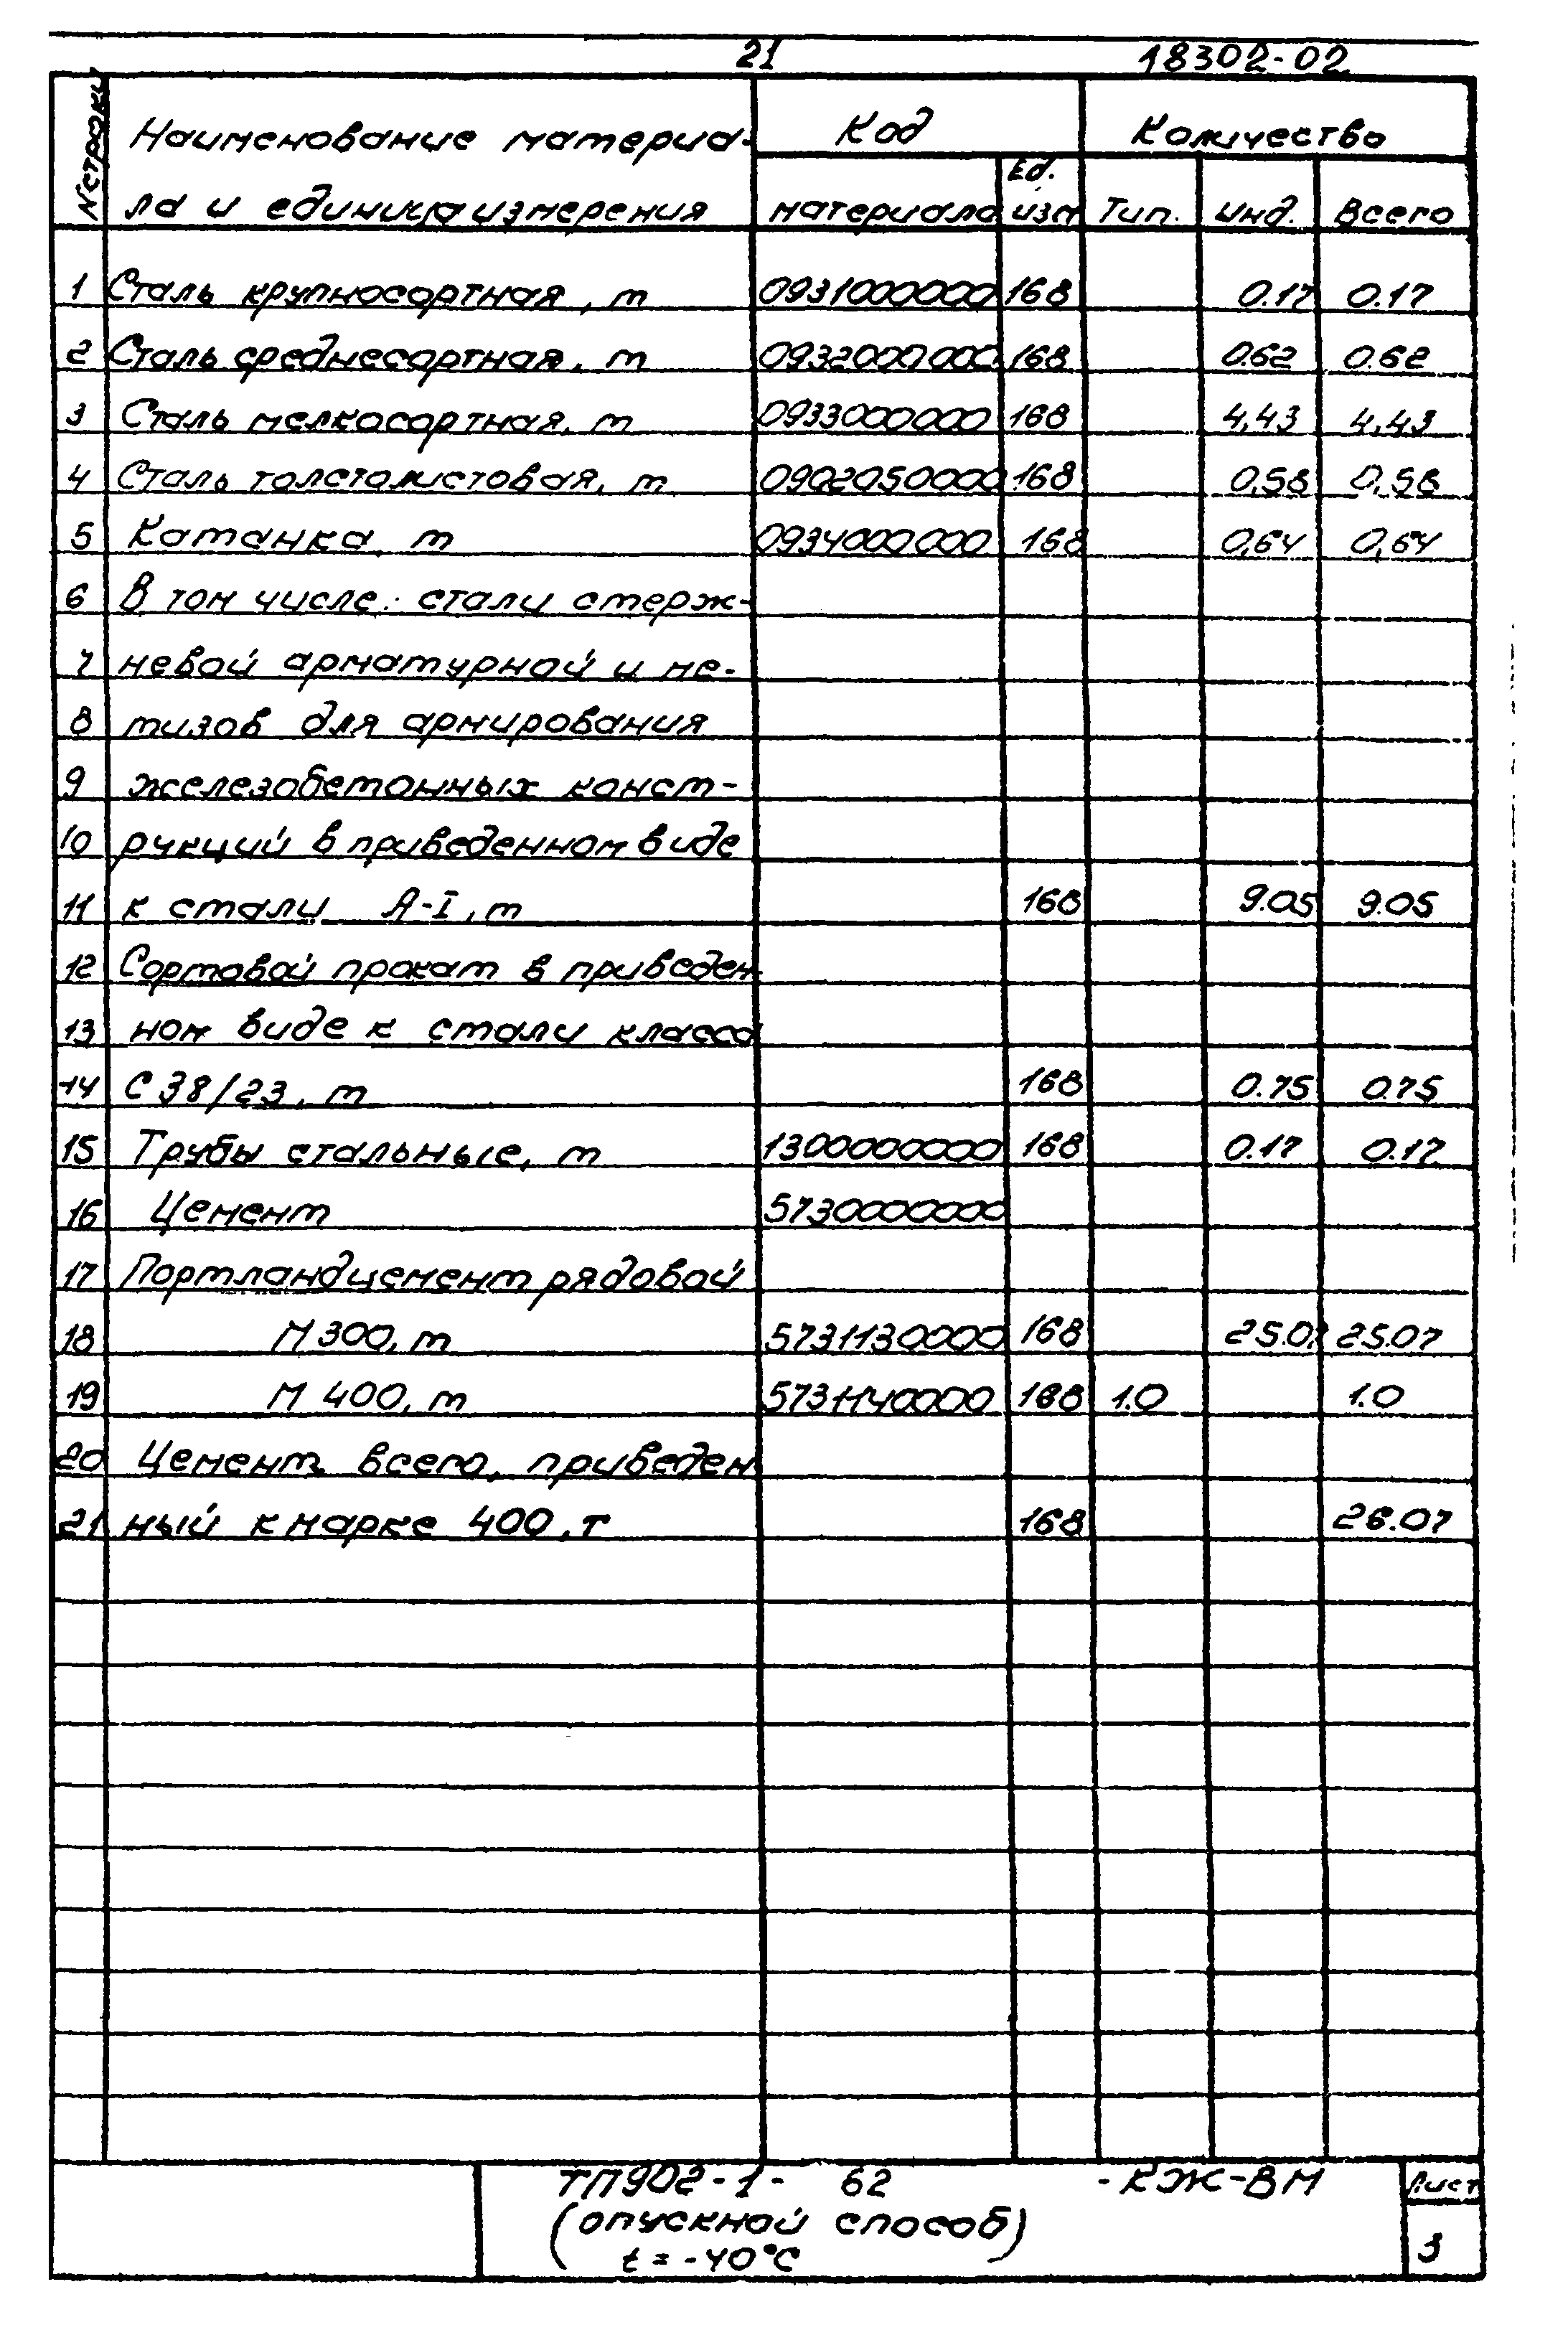 21 18302-02
N строки Наименование материа- Код Количество
Ед.
ла и единица измерения материала изм Тип. Инд. Всего
1 Сталь крупносортная, т 0931000000 168 0.17 0.17
2 Сталь среднесортная, т 0932000000 168 0.62 0.62
3 Сталь мелкосортная, т 0933000000 168 4,43 4,43
4 Сталь толстолистовая, т 0902050000 168 0,58 0,58
5 Катанка, т 0934000000 168 0,64 0,64
6 В том числе: стали стерж-
7 невой арматурной и ме-
8 тизов для армирования
9 железобетонных конст-
10 рукций в приведенном виде
11 к стали А-I, т 168 9.05 9.05
12 Сортовой прокат в приведен-
13 ном виде к стали класса
14 С 38/23, т 168 0.75 0.75
15 Трубы стальные, т 1300000000 168 0.17 0.17
16 Цемент 5730000000
17 Портландцемент рядовой
18 М 300, т 5731130000 168 25.07 25.07
19 М 400, т 5731140000 168 1.0 1.0
20 Цемент всего, приведен
21 ный к марке 400, т 168 26.07
ТП902-1- 62 -КЖ-ВМ Лист
(опускной способ)
t = -40°С 3